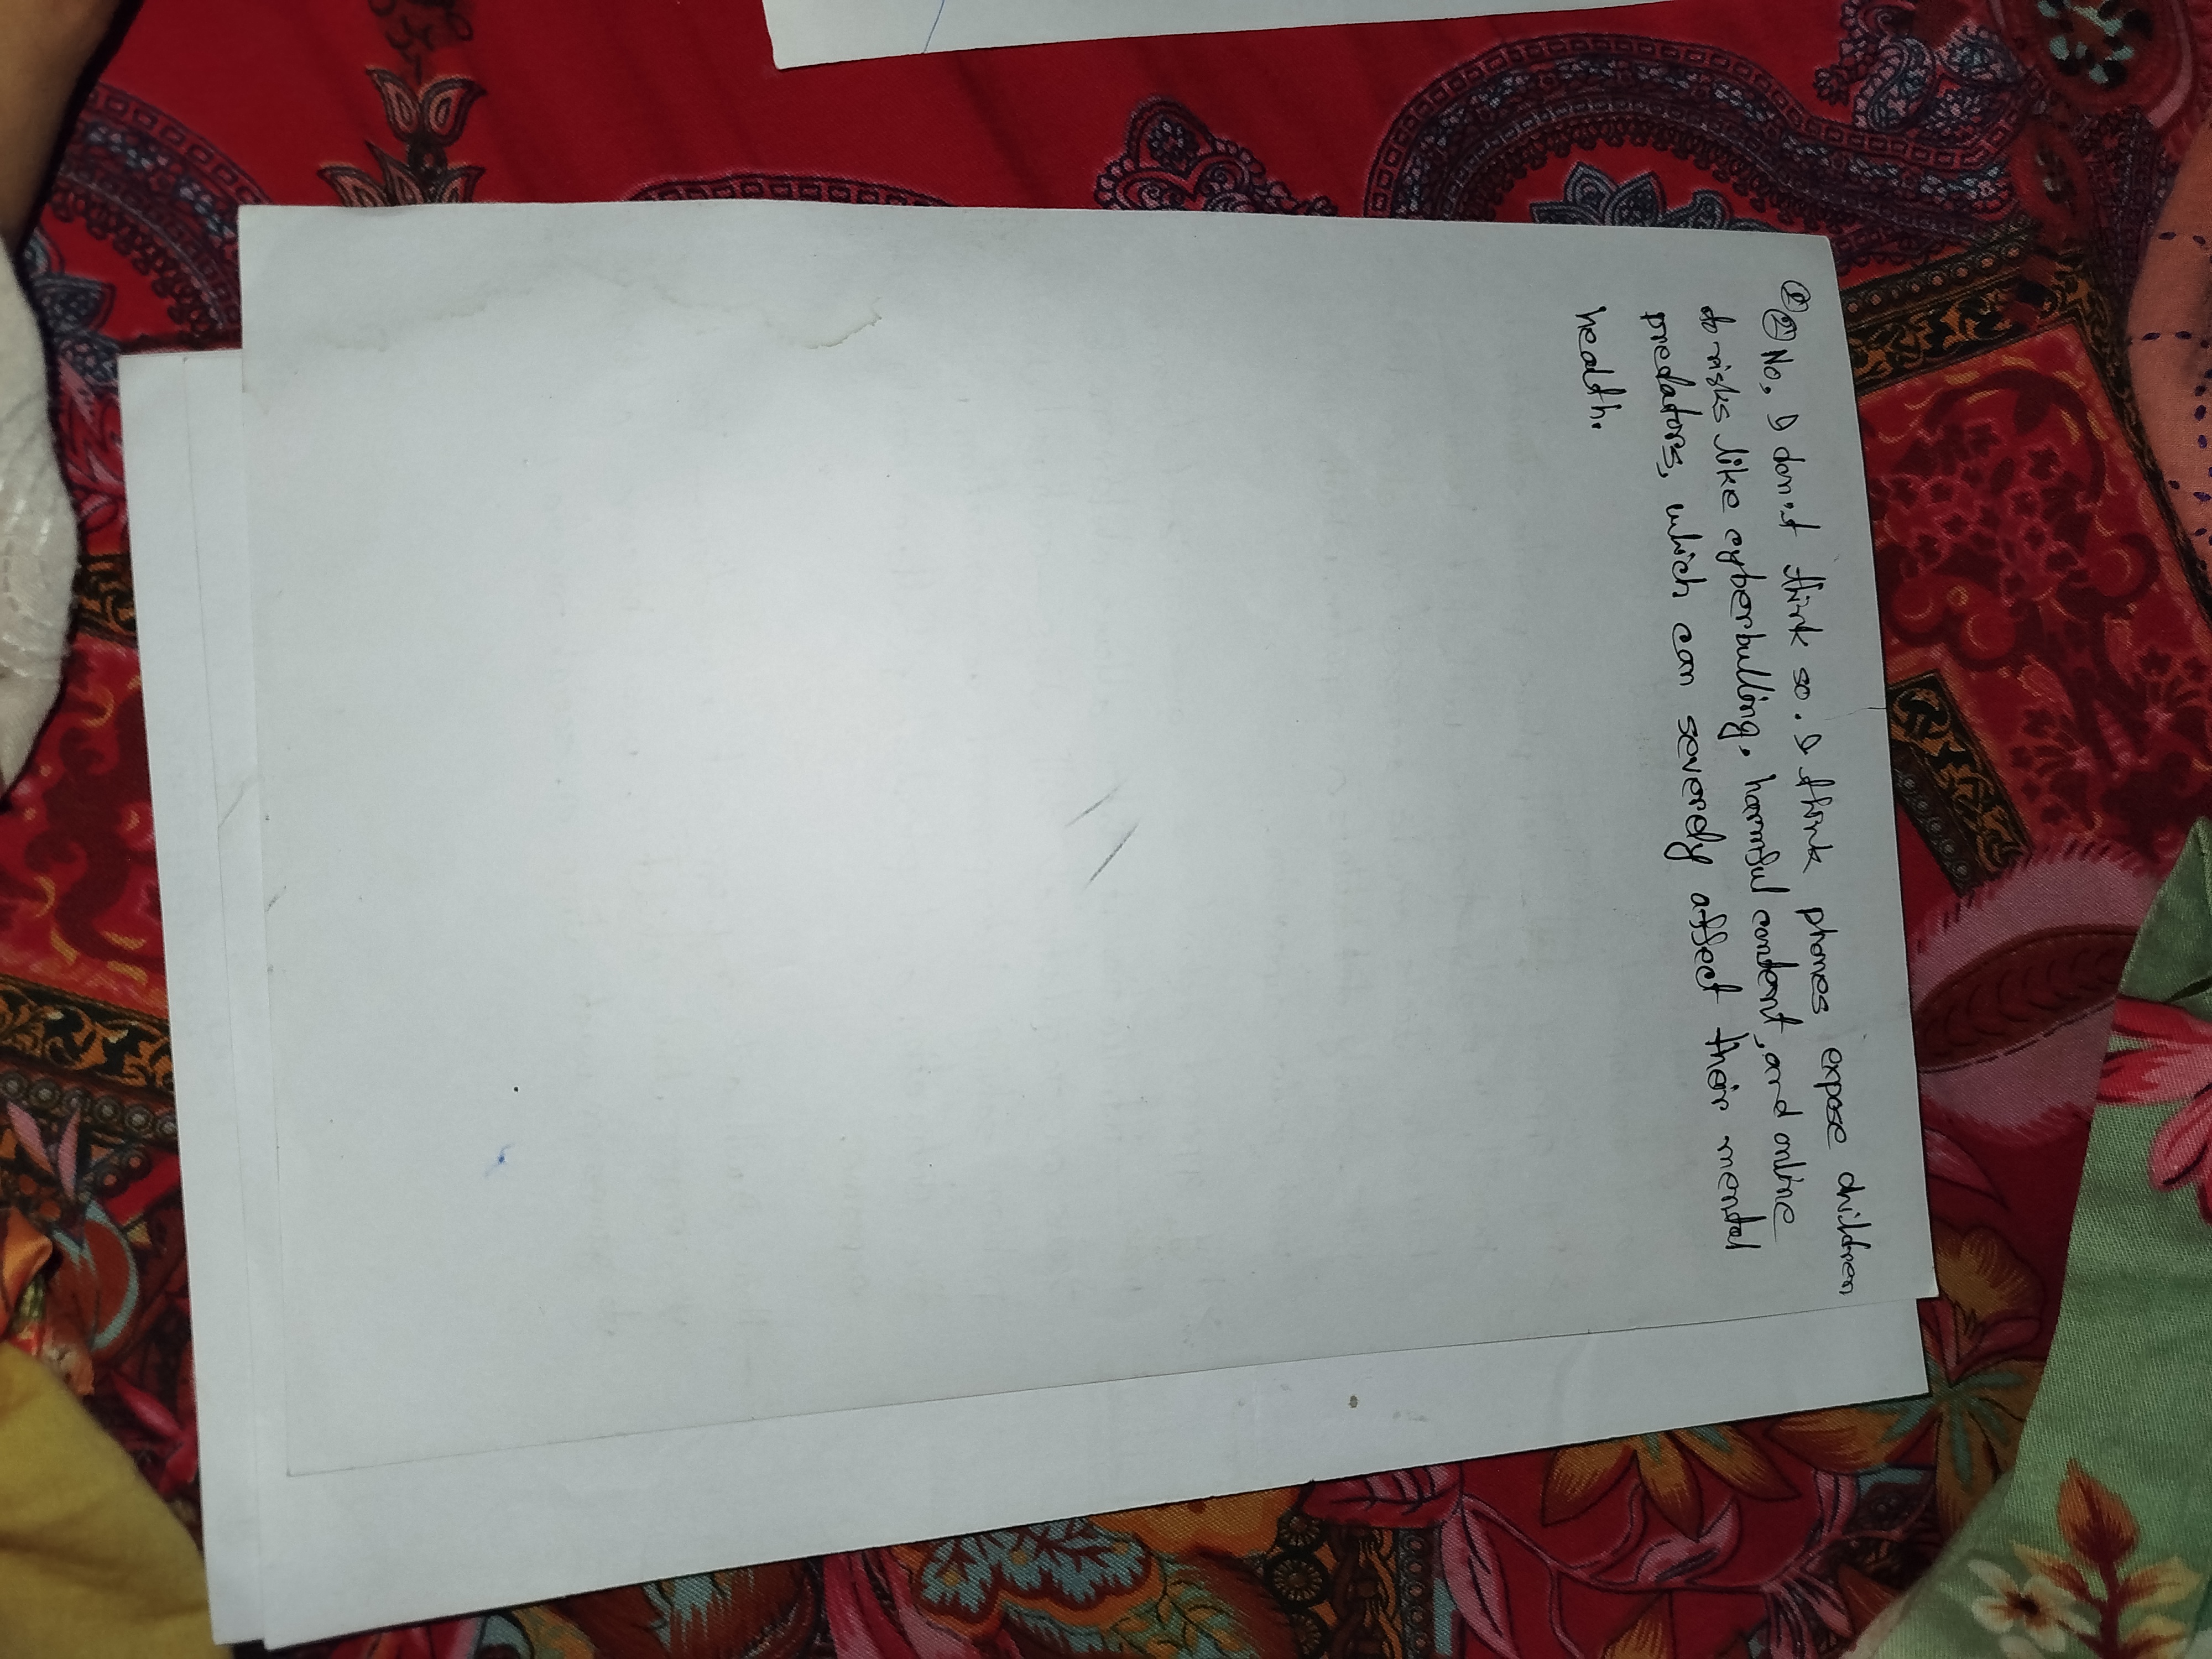 ①② No, I don't think so. I think phones expose children
to risks like cyberbulling, harmful content, and online
predators, which can severely affect their mental
health.